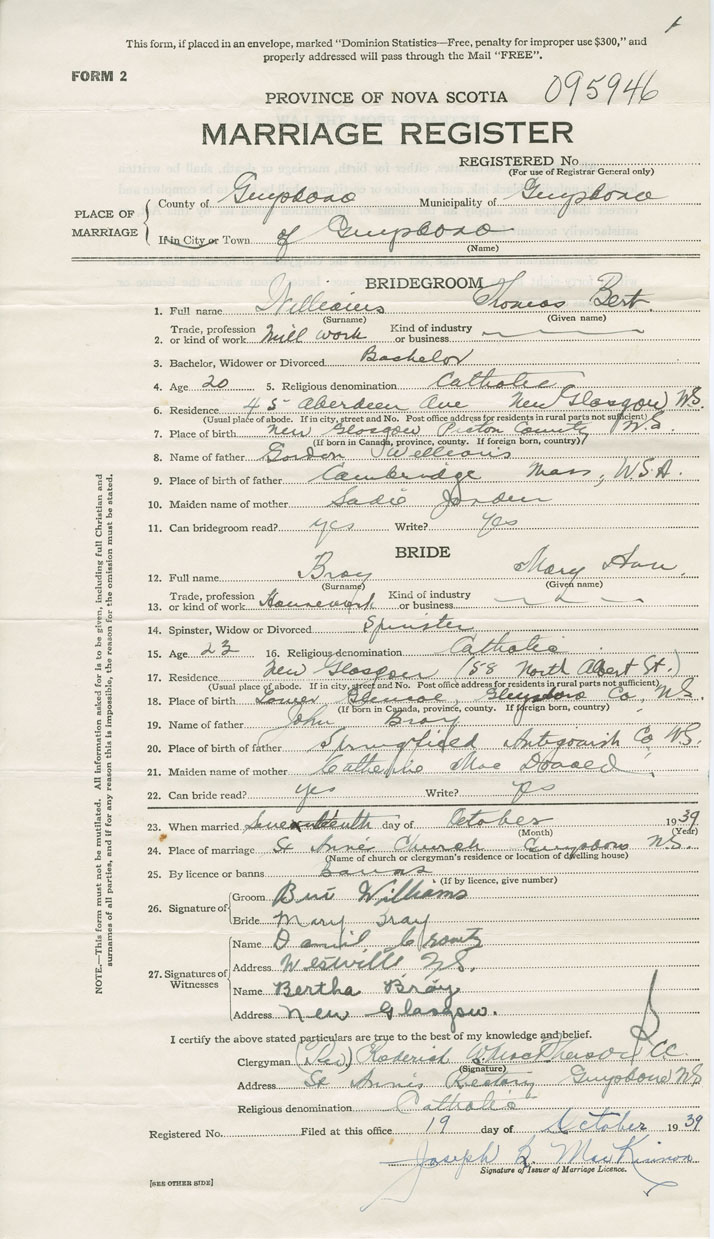 This form, if placed in an envelope, marked "Dominion Statistics—Free, penalty for improper use $300," and
properly addressed will pass through the Mail "FREE".
FORM 2
PROVINCE OF NOVA SCOTIA 095946
MARRIAGE REGISTER
REGISTERED No.
(For use of Registrar General only)
PLACE OF MARRIAGE
County of Guysboro Municipality of Guysboro
If in City or Town of Guysboro
(Name)
BRIDEGROOM
1. Full name Williams Thomas Bert.
(Surname) (Given name)
2. Trade, profession or kind of work Mill work Kind of industry or business
3. Bachelor, Widower or Divorced Bachelor
4. Age 20 5. Religious denomination Catholic
6. Residence 45 Aberdeen Ave New Glasgow N.S.
(Usual place of abode. If in city, street and No. Post office address for residents in rural parts not sufficient)
7. Place of birth New Glasgow Pictou County N.S.
(If born in Canada, province, county. If foreign born, country)
8. Name of father Gordon Williams
9. Place of birth of father Cambridge Mass, U.S.A.
10. Maiden name of mother Sadie Jorden
11. Can bridegroom read? yes Write? yes
BRIDE
12. Full name Bray Mary Ann.
(Surname) (Given name)
13. Trade, profession or kind of work Housework Kind of industry or business
14. Spinster, Widow or Divorced Spinster
15. Age 23 16. Religious denomination Catholic
17. Residence New Glasgow (58 North Albert St.)
(Usual place of abode. If in city, street and No. Post office address for residents in rural parts not sufficient)
18. Place of birth Lower Guysboro Co, N.S.
(If born in Canada, province, county. If foreign born, country)
19. Name of father John Bray
20. Place of birth of father Springfield Antigonish Co N.S.
21. Maiden name of mother Catherine Mac Donald
22. Can bride read? yes Write? yes
23. When married day of October 1939
(Month) (Year)
24. Place of marriage St Anne's Church Guysboro N.S.
(Name of church or clergyman's residence or location of dwelling house)
25. By licence or banns Banns
(If by licence, give number)
26. Signature of
Groom Bert Williams
Bride Mary Bray
27. Signatures of Witnesses
Name Daniel
Address Westville N.S.
Name Bertha Bray
Address New Glasgow.
I certify the above stated particulars are true to the best of my knowledge and belief.
Clergyman (Rev) Roderick MacPherson C.C.
(Signature)
Address St Ann's Rectory Guysboro NS
Religious denomination Catholic
Registered No. Filed at this office 19 day of October 1939
Joseph MacKinnon
Signature of Issuer of Marriage Licence.
[SEE OTHER SIDE]
NOTE.—This form must not be mutilated. All information asked for is to be given, including full Christian and
surnames of all parties, and if for any reason this is impossible, the reason for the omission must be stated.